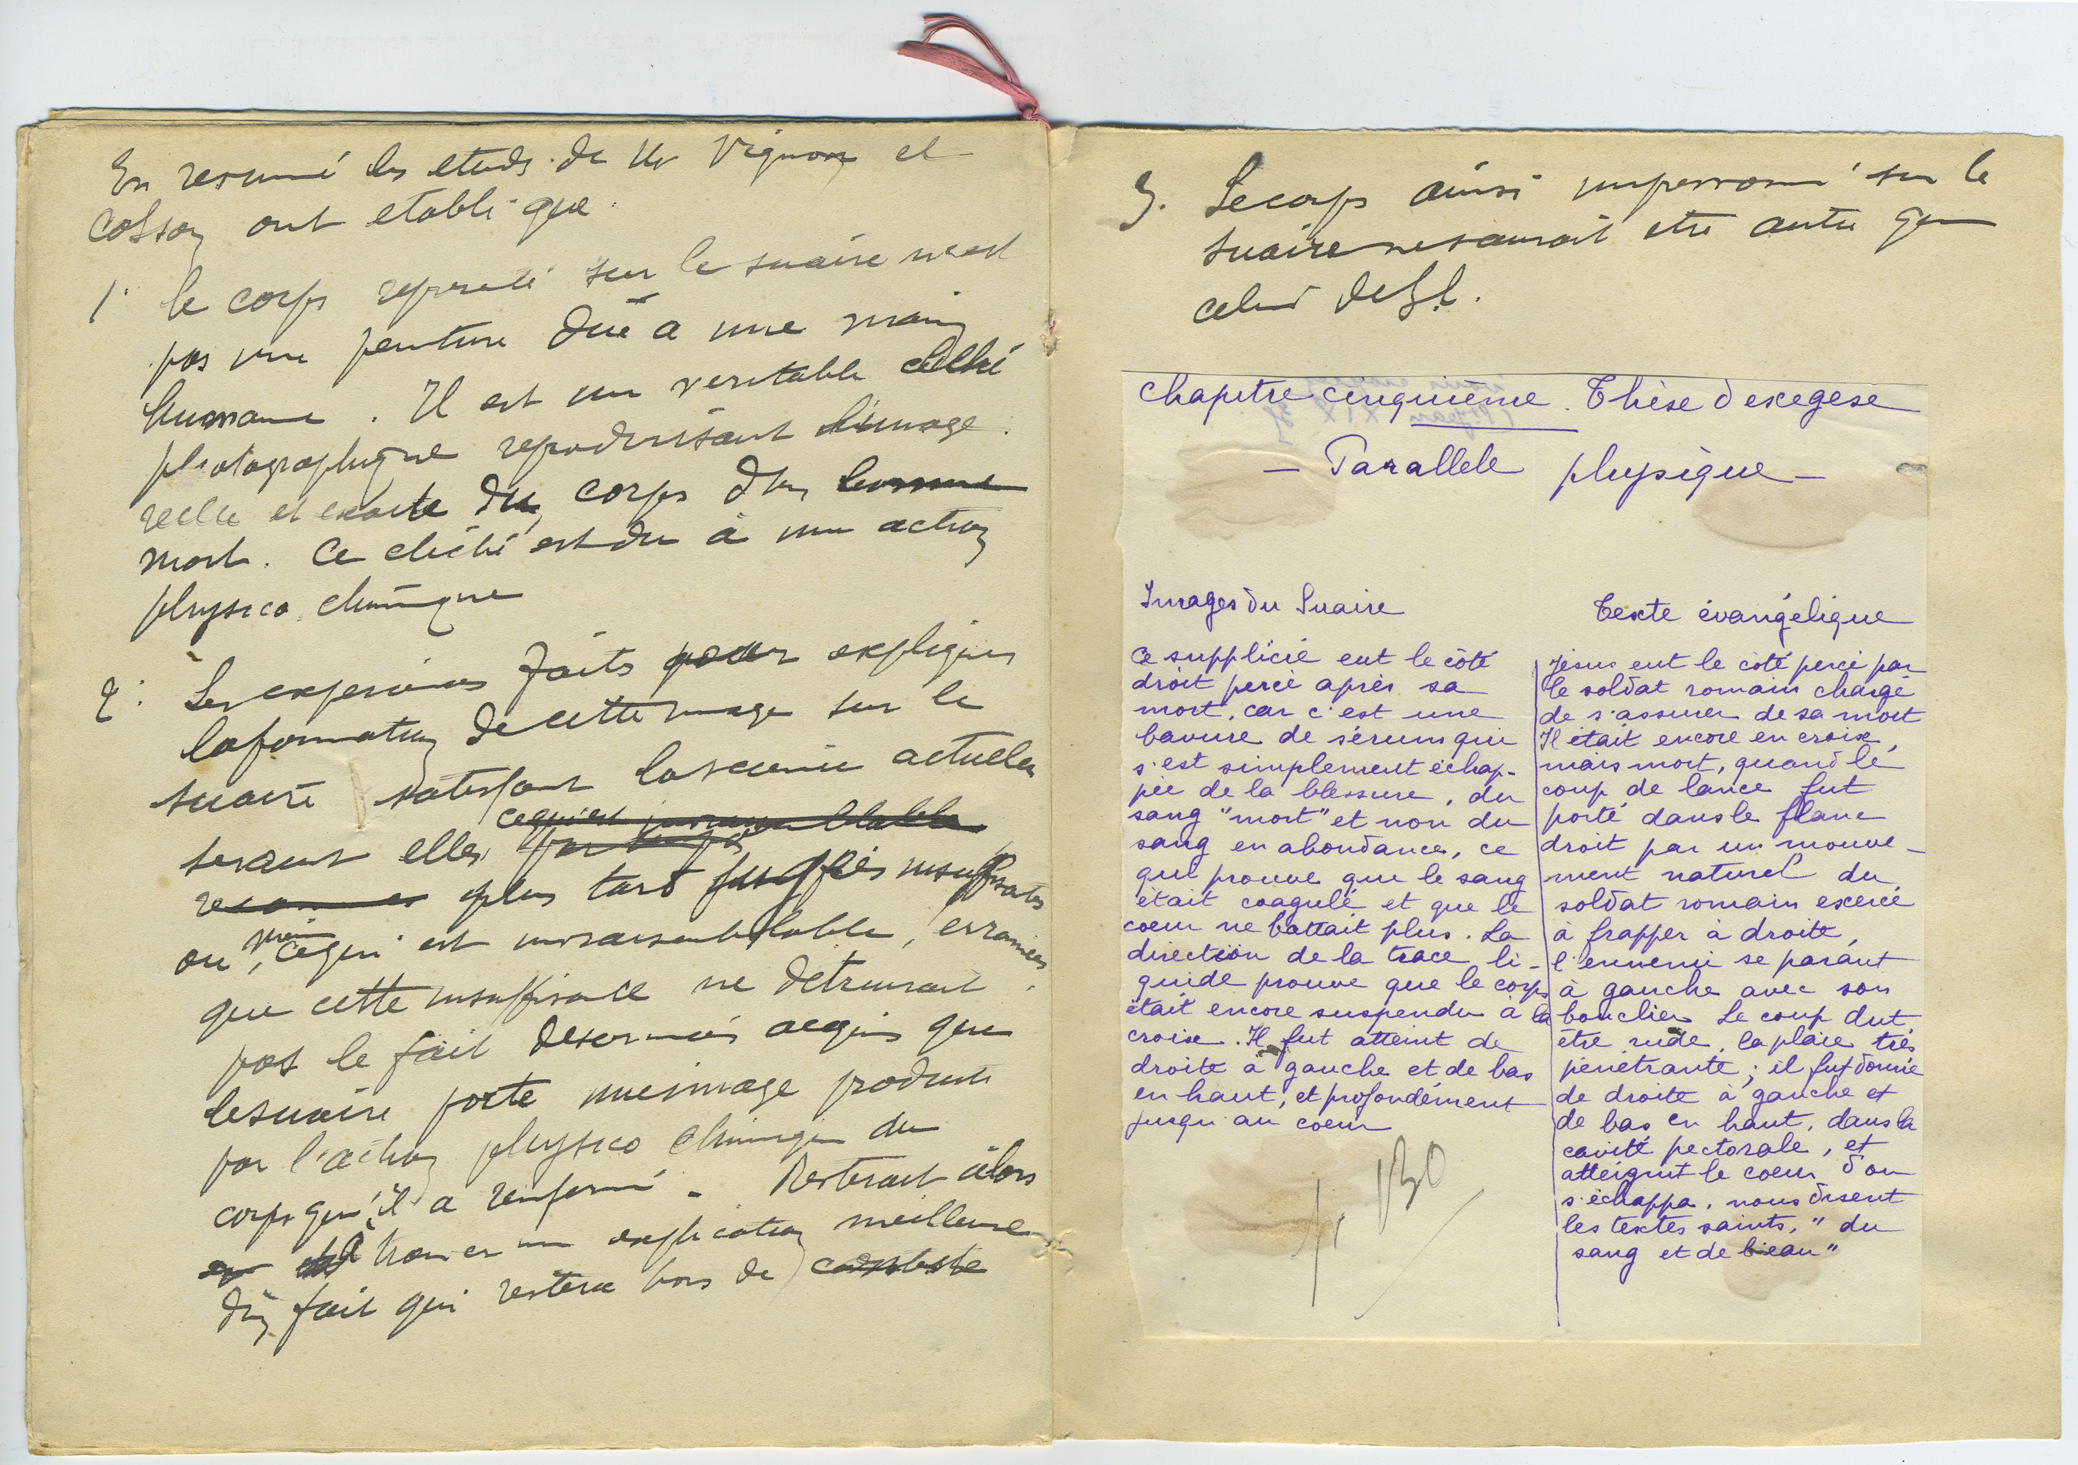 En resumé les etuds de Mr Vignon et
Colson ont etabli que.
1. le corps represté sur le suaire n'est
pas une peinture dûe à une main
humaine. Il est un veritable cliché
photographique reproduisant l'image
reelle et exacte du corps d'un homme
mort. Ce cliché est du à une action
physico chimique
2. Les experiences faits pour expliquer
la formation de cette image sur le
suaire satisfont la science actuelle
seraient elles
ce qui est invraisemblable
reconnues plus tard jugées insuffisantes
ou même, ce qui est invraisemblable, erronnées
que cette insuffisance ne detruirait
pas le fait desormais acquis que
le suaire porte une image produite
par l'action physico chimique du
corps qu'il a renfermé. Resterait alors
à trouver une explication meilleure
d'un fait qui restera hors de conteste
3. Le corps ainsi impressionné sur le
suaire ne saurait etre autre que
celui de J.C.
Chapitre cinquième. Thèse d'exegese
— Parallele physique —
Images du Suaire
Ce supplicié eut le côté
droit percé après sa
mort, car c'est une
bavure de sérum qui
s'est simplement échap-
pée de la blessure, du
sang "mort" et non du
sang en abondance, ce
qui prouve que le sang
était coagulé et que le
coeur ne battait plus. La
direction de la trace li-
quide prouve que le corps
était encore suspendu à la
croix. Il fut atteint de
droite à gauche et de bas
en haut, et profondément
jusqu'au coeur
130
Texte évangélique
Jésus eut le côté percé par
le soldat romain chargé
de s'assurer de sa mort
Il était encore en croix,
mais mort, quand le
coup de lance fut
porté dans le flanc
droit par un mouve-
ment naturel du
soldat romain exercé
à frapper à droite,
l'ennemi se parant
à gauche avec son
bouclier. Le coup dut
être rude, la plaie très
pénétrante; il fut donné
de droite à gauche et
de bas en haut, dans la
cavité pectorale, et
atteignit le coeur d'où
s'échappa, nous disent
les textes saints, "du
sang et de l'eau"